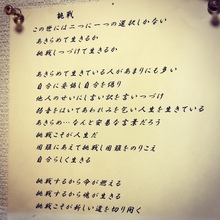 挑戦
この世には二つに一つの選択しかない
あきらめて生きるか
挑戦しつづけて生きるか
あきらめて生きている人があまりにも多い
自分に妥協し自分を偽り
他人のせいにし言い訳を言いつづけ
弱音をはいてあわれみを乞い人生を生きている
あきらめ…なんと安易な言葉だろう
挑戦こそが人生だ
困難にあえて挑戦し困難をのりこえ
自分らしく生きる
挑戦するから命が燃える
挑戦するから魂が生きる
挑戦こそが新しい道を切り開く